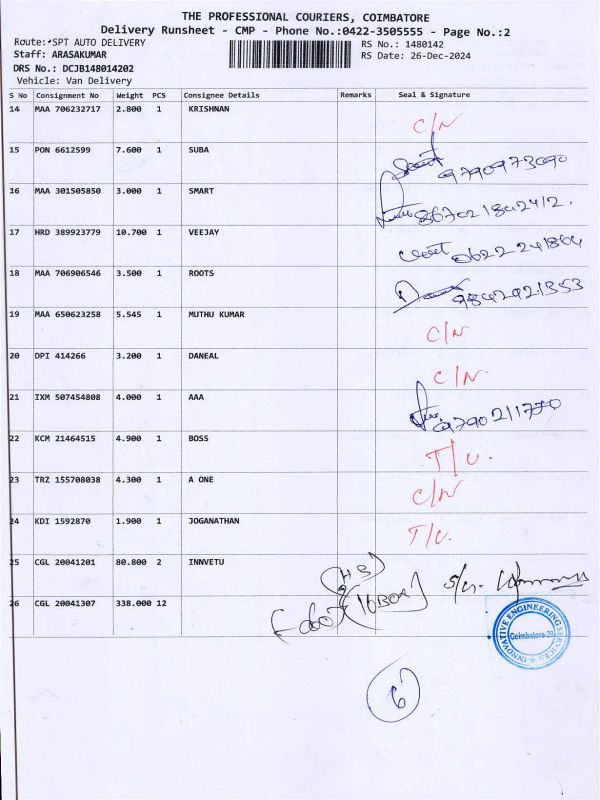 THE PROFESSIONAL COURIERS, COIMBATORE
Delivery Runsheet - CMP - Phone No.:0422-3505555 - Page No.:2
Route:*SPT AUTO DELIVERY RS No.: 1480142
Staff: ARASAKUMAR RS Date: 26-Dec-2024
DRS No.: DCJB148014202
Vehicle: Van Delivery
S No Consignment No Weight PCS Consignee Details Remarks Seal & Signature
14 MAA 706232717 2.800 1 KRISHNAN C/N
15 PON 6612599 7.600 1 SUBA 9790973090
16 MAA 301505850 3.000 1 SMART
17 HRD 389923779 10.700 1 VEEJAY
18 MAA 706906546 3.500 1 ROOTS 9842921353
19 MAA 650623258 5.545 1 MUTHU KUMAR C/N
20 DPI 414266 3.200 1 DANEAL C/N
21 IXM 507454808 4.000 1 AAA
22 KCM 21464515 4.900 1 BOSS T/U.
23 TRZ 155708038 4.300 1 A ONE C/N
24 KDI 1592870 1.900 1 JOGANATHAN T/U.
25 CGL 20041201 80.800 2 INNVETU
26 CGL 20041307 338.000 12
INNOVATIVE ENGINEERING SERVICES
Coimbatore-29
6